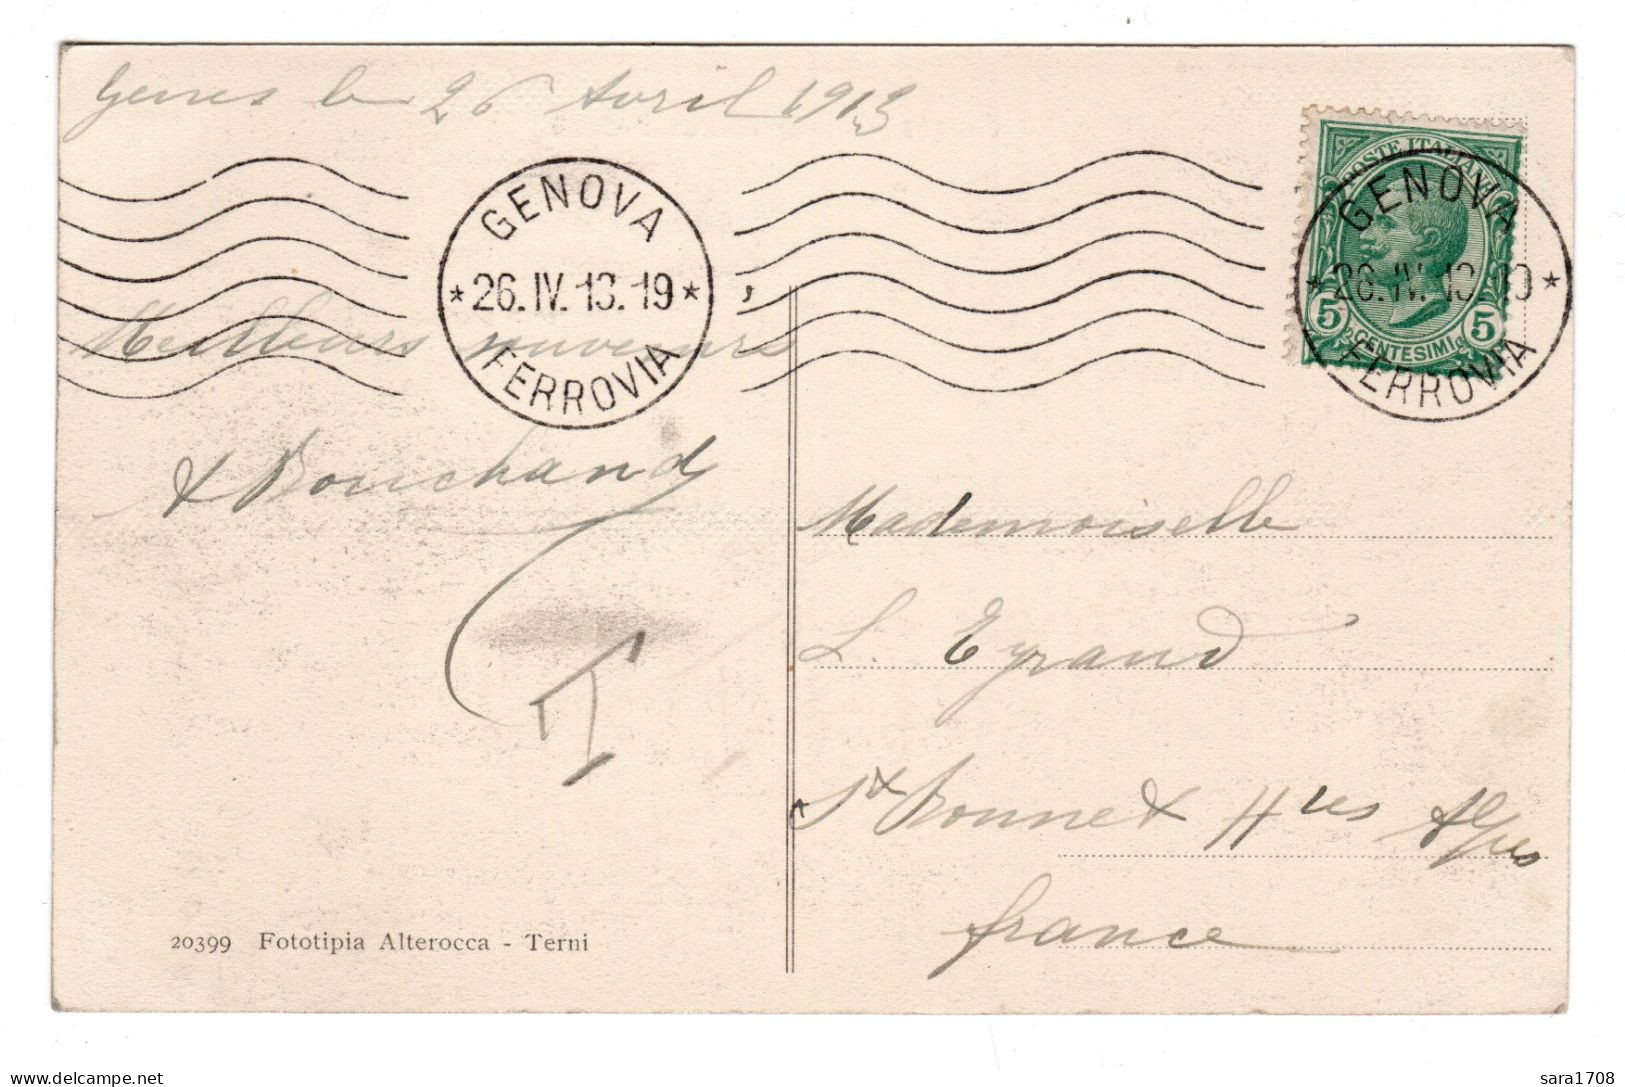 Gênes le 26 Avril 1913
POSTE ITALIANE
GENOVA
* 26.IV.13.19 *
FERROVIA
GENOVA
* 26.IV.13.19 *
FERROVIA
5 CENTESIMI 5
Meilleurs souvenirs
Bouchand
T
Mademoiselle
L. Eyraud
St Bonnet Htes Alpes
france
20399 Fototipia Alterocca - Terni
delcampe.net
sara1708